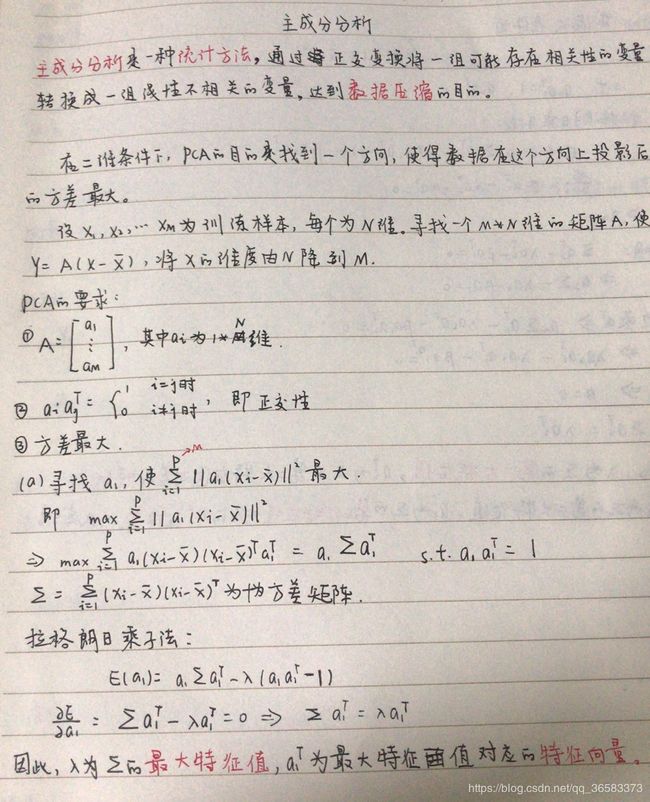 主成分分析
主成分分析是一种统计方法，通过正交变换将一组可能存在相关性的变量
转换成一组线性不相关的变量，达到数据压缩的目的。
在二维条件下，PCA的目的是找到一个方向，使得数据在这个方向上投影后
的方差最大。
设 X₁, X₂, … Xₘ 为训练样本，每个为N维。寻找一个 M*N维的矩阵A，使
Y = A(X-X̄)，将X的维度由N降到M.
PCA的要求：
① A=[a₁ ⋮ aₘ]，其中aᵢ为1*N维.
② aᵢaⱼᵀ = { 1 i=j时 0 i≠j时，即正交性
③ 方差最大.
(a) 寻找 a₁, 使 Σᵢ₌₁ᴾ→M ||a₁(xᵢ-x̄)||² 最大.
即 max Σᵢ₌₁ᴾ ||a₁(xᵢ-x̄)||²
⇒ max Σᵢ₌₁ᴾ a₁(xᵢ-x̄)(xᵢ-x̄)ᵀa₁ᵀ = a₁Σa₁ᵀ s.t. a₁a₁ᵀ = 1
Σ = Σᵢ₌₁ᴾ (xᵢ-x̄)(xᵢ-x̄)ᵀ为协方差矩阵.
拉格朗日乘子法：
E(a₁) = a₁Σa₁ᵀ-λ(a₁a₁ᵀ-1)
∂E/∂a₁ = Σa₁ᵀ-λa₁ᵀ=0 ⇒ Σa₁ᵀ=λa₁ᵀ
因此，λ为Σ的最大特征值，a₁ᵀ为最大特征值对应的特征向量。
https://blog.csdn.net/qq_36583373